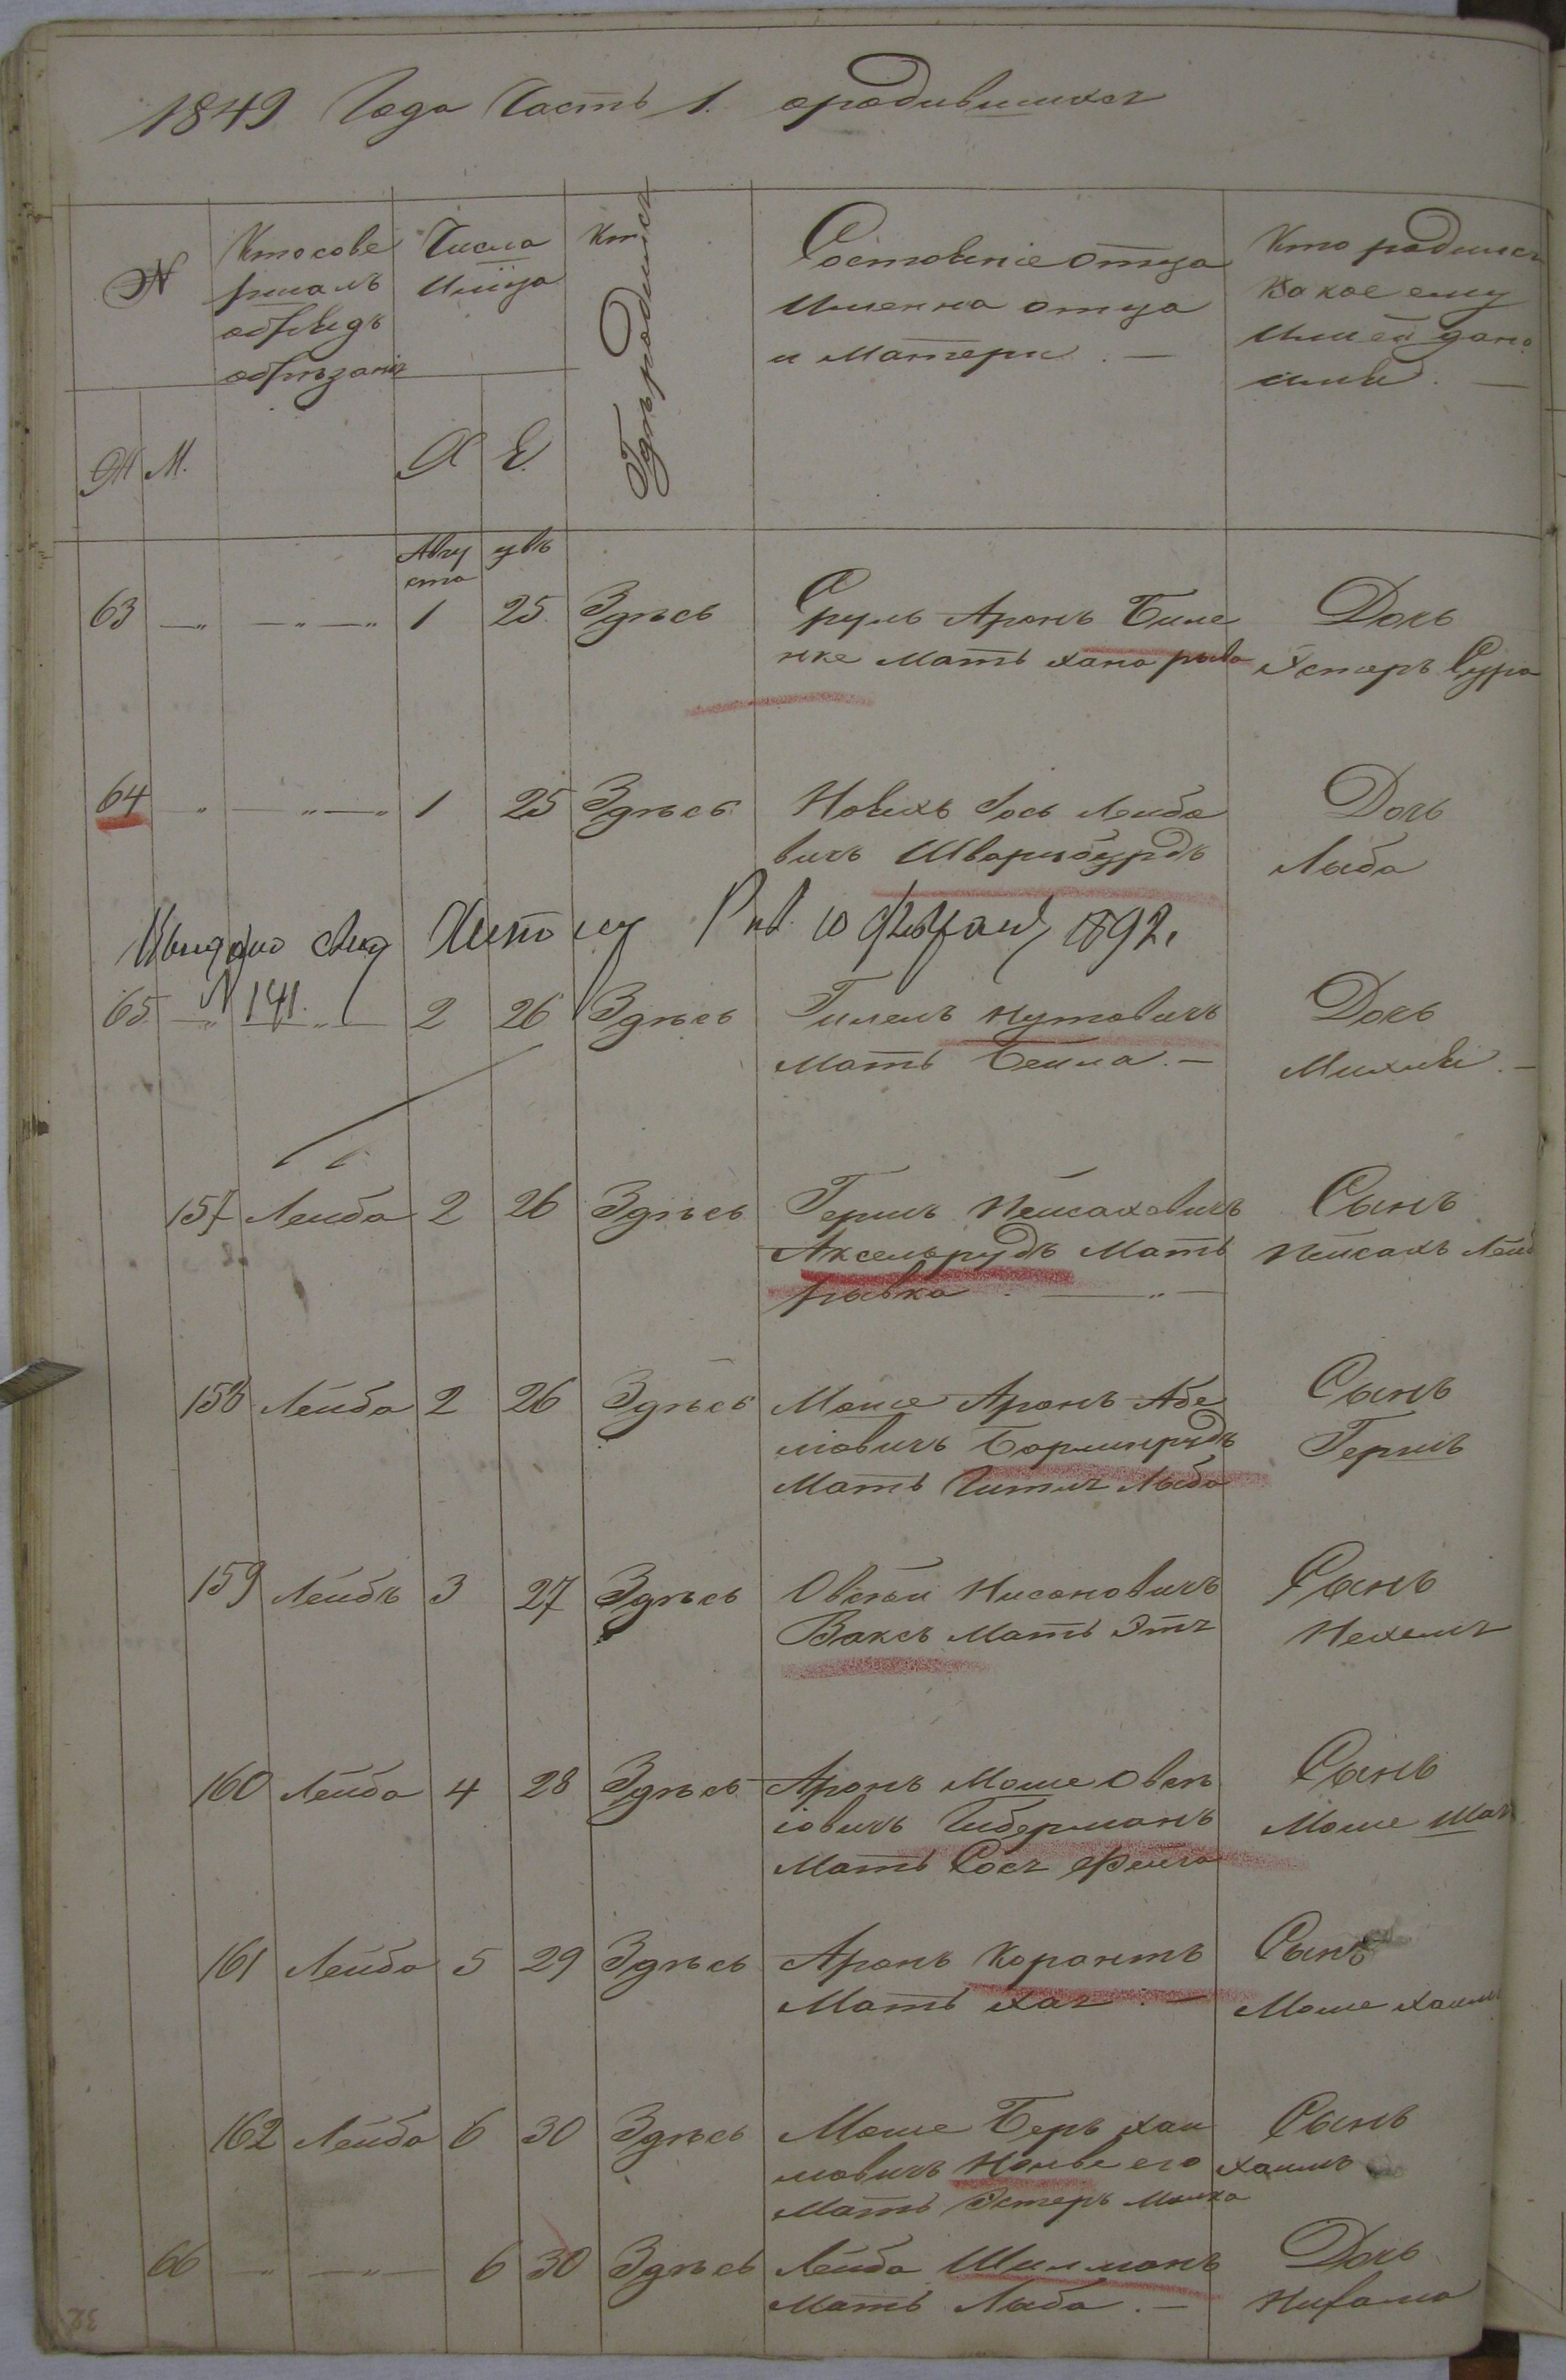 1849 Года Часть 1. ородившихся
№
Кто сове
ршалъ
обрядъ
обрѣзанія
Числа
Мѣсяца
Кт
Гдѣ родился
Состояніе отца
Имена отца
и Матери. —
Кто родился
Какое ему
или ей дано
имя. —
Ж М.
Х Е.
Авгу
ста
увъ
63 1 25 Здѣсь Сруль Аронъ Биле
нке Мать Хана рыва
Дочь
Эстеръ Сура
64 1 25 Здѣсь Новихъ Іось Лейбо
вичъ Шварцбурдъ
Дочь
Лыба
Выдано свид 10 февраля 1892.
N 141.
65 2 26 Здѣсь Гилель Нутовичъ
Мать Бейла. —
Дочь
157 Лейба 2 26 Здѣсь Гершъ Пейсаховичъ
Аксельрудъ Мать
рывка. —
Сынъ
Пейсахъ Лейб
158 Лейба 2 26 Здѣсь Моше Аронъ Абе
мовичъ
Мать Гитля Лыба
Сынъ
Гершъ
159 Лейбъ 3 27 Здѣсь Овсѣй Нисоновичъ
Ваксъ Мать Этя
Сынъ
Нехемя
160 Лейба 4 28 Здѣсь Аронъ Моше Овсѣ
іовичъ Либерманъ
Мать Сося Фейга
Сынъ
Моше
161 Лейба 5 29 Здѣсь Аронъ Корантъ
Мать Хая. —
Сынъ
Моше Хаимъ
162 Лейба 6 30 Здѣсь Моше Беръ Хаи
мовичъ его
Мать Эстеръ Малка
Сынъ
Хаимъ
66 6 30 Здѣсь Лейба Шилманъ
Мать Лыба. —
Дочь